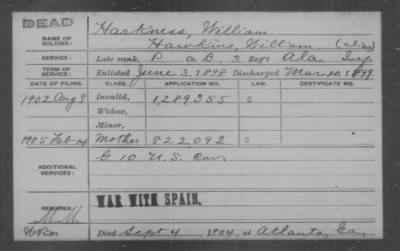 DEAD
NAME OF SOLDIER: Harkness, William
Hawkins, William (alias)
SERVICE: Late rank, P Co. B, 3 Reg't Ala. Inf.
TERM OF SERVICE: Enlisted June 3, 1898 Discharged Mar 20, 1899
DATE OF FILING. CLASS. APPLICATION NO. LAW. CERTIFICATE NO.
1902 Aug 9 Invalid, 1,289,355 S
Widow,
Minor,
1905 Feb 14 Mother 822092 S
ADDITIONAL SERVICES: G 10 U.S. Cav.
WAR WITH SPAIN.
REMARKS:
Died Sept 4, 1904, at Atlanta, Ga.